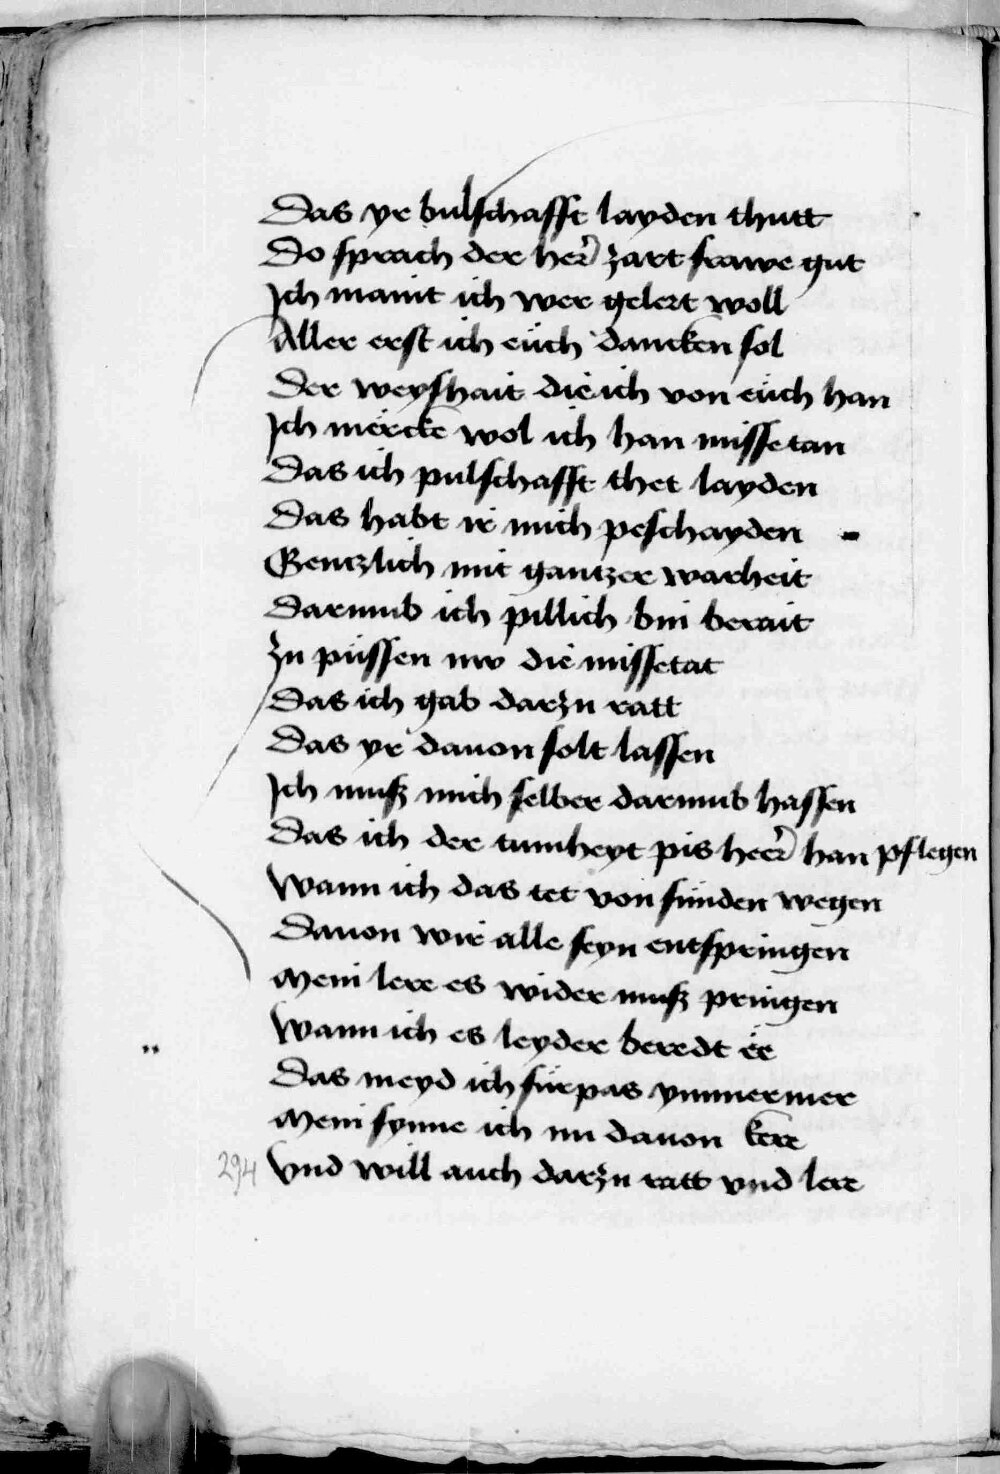 Das yr bulschafft layden thutt
Do sprach der her̃ zart frawe gut
Ich maint ich wer gelert woll
Aller erst ich eüch dancken sol
Der weyshait die ich von eüch han
Ich mërcke wol ich han missetan
Das ich pulschafft thet layden
Das habt ir mich peschayden
Gentzlich mit gantzer warheit
Darumb ich pillich bin berait
Zu püssen nw die missetat
Das ich gab darzu ratt
Das yr dauon solt lassen
Ich muß mich selber darumb hassen
Das ich der tumheyt pis heer̃ han pflegen
Wann ich das tet von sünden wegen
Dauon wir alle seyn entspringen
Mein lere es wider muß pringen
Wann ich es leyder beredt ëe
Das meyd ich fürpas ymmermer
Mein synne ich nu dauon kere
294 Vnd will auch darzu ratt vnd lere